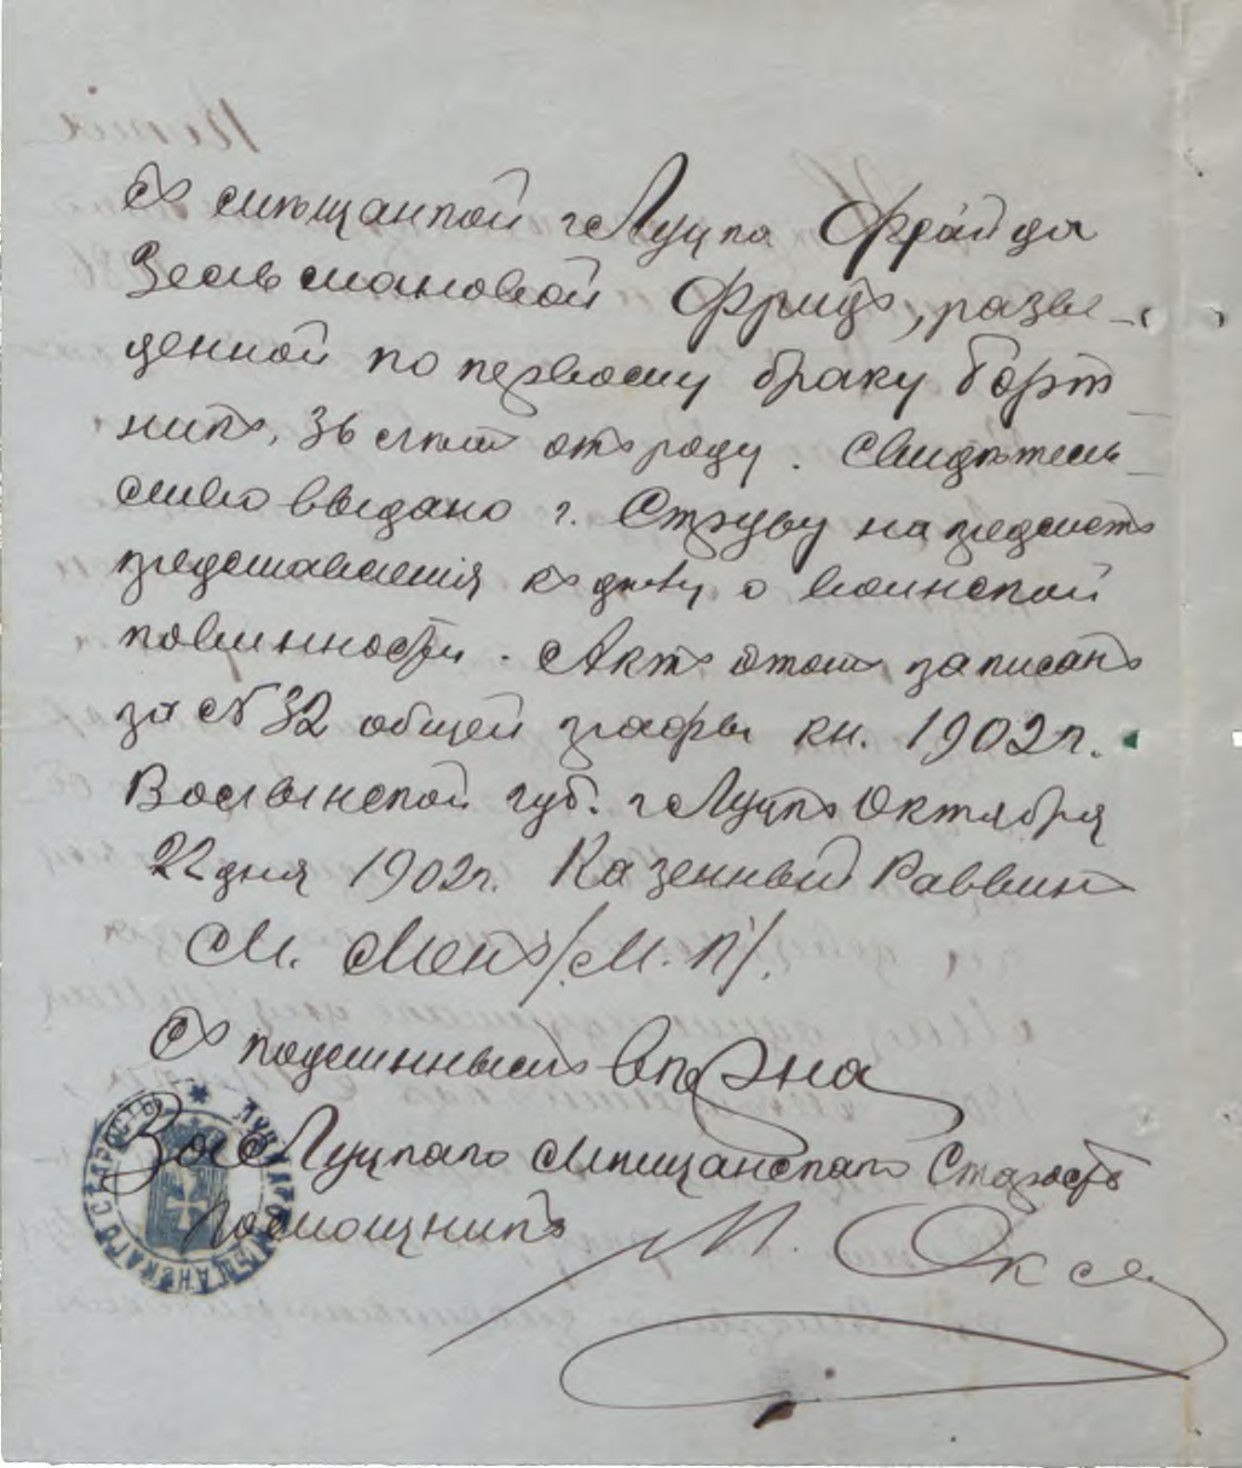 съ мѣщанкой г Луцка Фрайда
Зельмановой Фридъ, разве-
денной по первому браку Борт
никъ, 36 лѣтъ отъ роду. Свидѣтель
ство выдано г. Струву на предметъ
представленія къ дѣлу о воинской
повинности. Актъ этотъ записанъ
за № 32 общей графы кн. 1902 г.
Волынской губ. г Луцкъ Октября
22 дня 1902 г. Казенный Раввинъ
М. /М. П/.
Съ подлиннымъ вѣрна
За Луцкаго Мѣщанскаго Старосту
Помощникъ М. Оксъ
ЛУЦКАГО МѢЩАНСКАГО СТАРОСТЫ